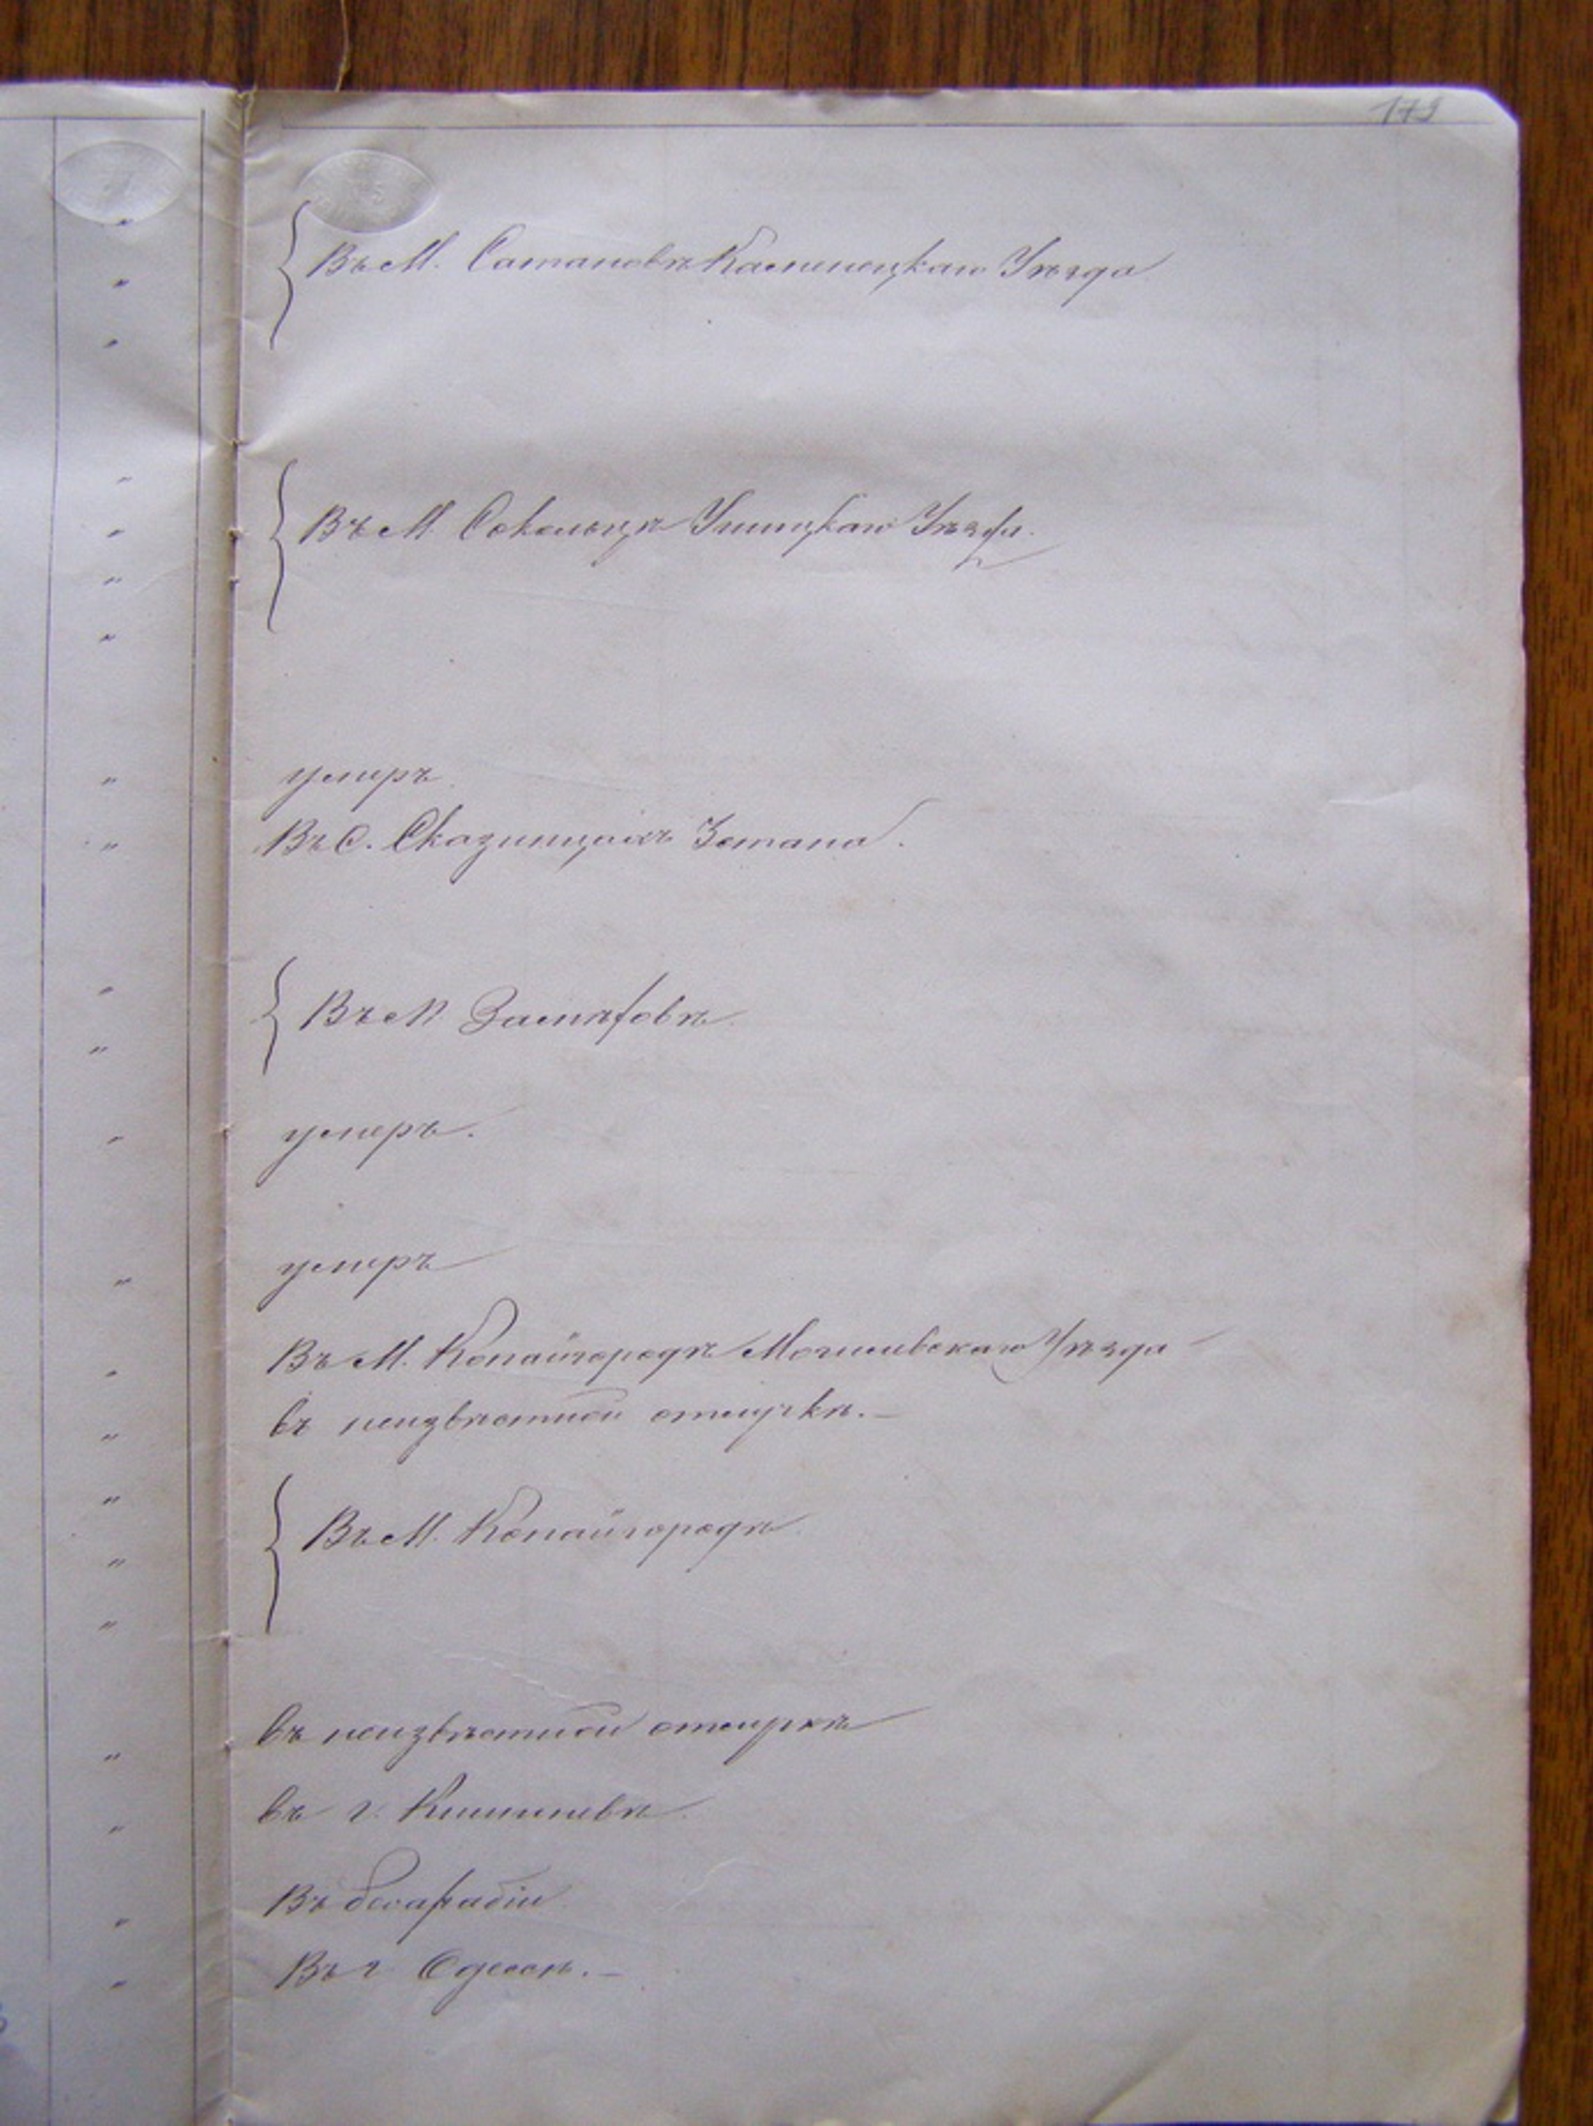 173
Въ М. Сатановѣ Каменецкаго Уѣзда
Въ М. Сокольцѣ Ушицкаго Уѣзда.
умеръ
Въ С. Сказинцахъ 3 стана.
Въ М. Замѣховѣ
умеръ.
умеръ
Въ М. Копайгородѣ Могилевскаго Уѣзда
въ неизвѣстной отлучкѣ. —
Въ М. Копайгородѣ
въ неизвѣстной отлучкѣ
въ г. Кишиневѣ
Въ бесарабіи
Въ г Одессѣ. —